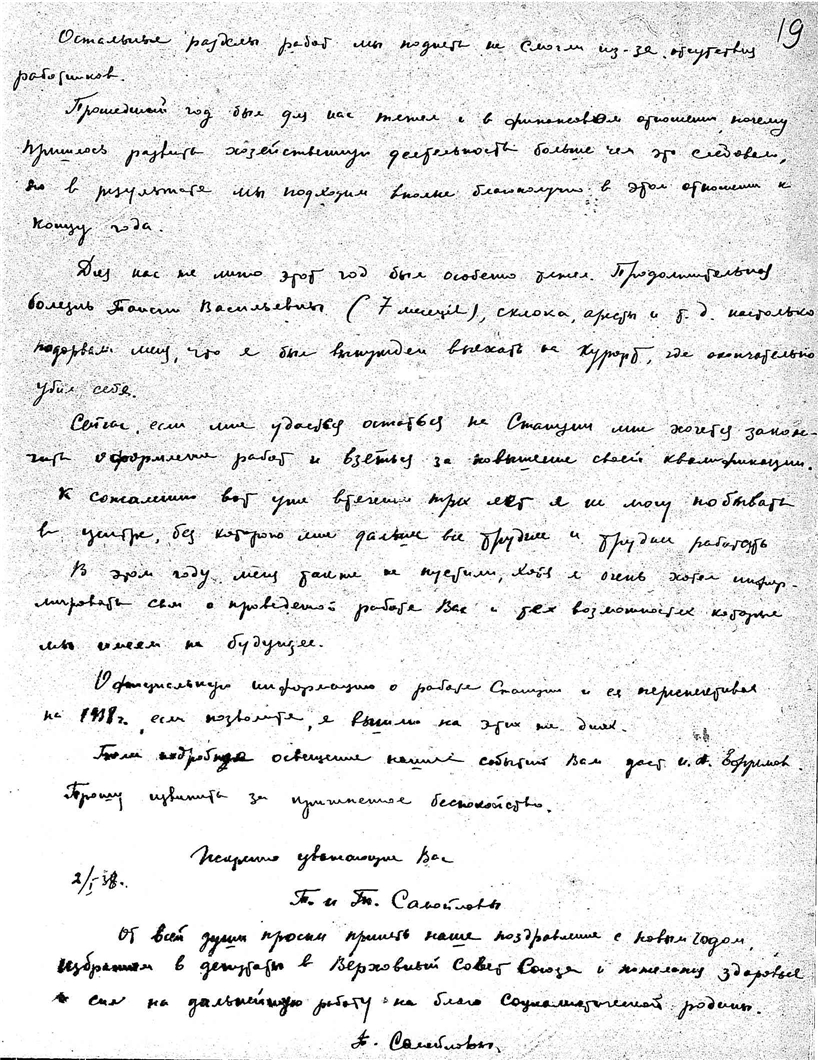 19
Остальные разделы работ мы поднять не смогли из-за отсутствия
работников.
Прошедший год был для нас тяжел и в финансовом отношении, почему
пришлось развить хозяйственную деятельность больше чем это следовало,
но в результате мы подходим вполне благополучно в этом отношении к
концу года.
Для нас же лично этот год был особенно тяжел. Продолжительная
болезнь Таисии Васильевны (7 месяцев), склока, аресты и т.д. настолько
подорвали меня, что я был вынужден выехать на курорт, где окончательно
убил себя.
Сейчас, если мне удастся остаться на Станции мне хочется закон-
чить оформление работ и взяться за повышение своей квалификации.
К сожалению вот уже втечении трех лет я не могу побывать
в центре, без которого мне дальше все труднее и труднее работать
В этом году меня также не пустили, хотя я очень хотел инфор-
мировать сам о проведенной работе Вас и тех возможностях которые
мы имеем на будущее.
Официальную информацию о работе Станции и ее перспективах
на 1938 г., если позволите, я вышлю на этих же днях.
Более подробное освещение наших событий Вам даст Ефримов.
Прошу извинить за причиненное беспокойство.
Искренно уважающие Вас
2/I-38г.
Т. и Самойловы
От всей души просим принять наше поздравление с новым годом,
избранием в депутаты в Верховный Совет Союза и пожелания здоровья
и сил на дальнейшую работу на благо социалистической родины.
Самойловы.